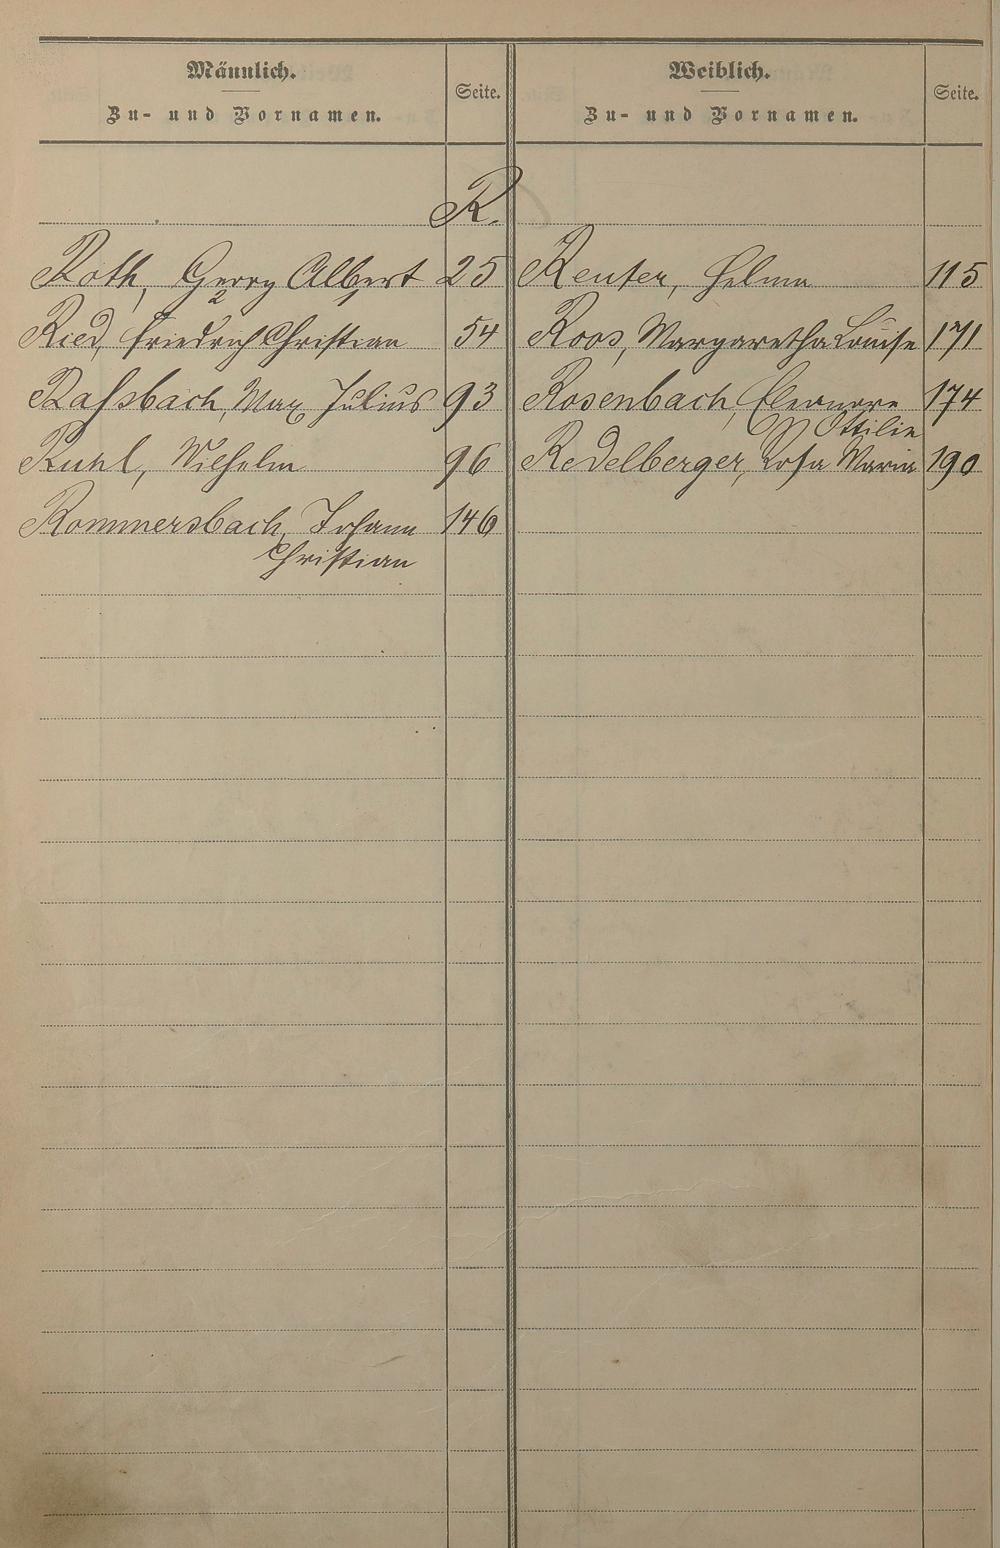 Männlich.
Zu- und Vornamen.
Seite.
Weiblich.
Zu- und Vornamen.
Seite.
R.
Roth, Georg Albert 25
Reuter, Helma 115
2
Ried, Friedrich Christian 54
Roos, Margaretha Louise 171
Raßbach, Max Julius 93
Rosenbach, Eleonore 174
Ottilie
Ruhl, Wilhelm 96
Redelberger, Rosa Maria 190
Rommersbach, Johann 146
Christian